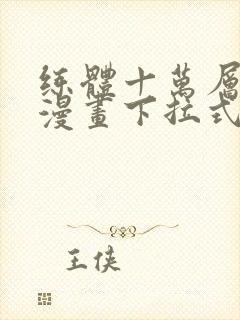 綀體十萬層
漫畫下拉式
王俠